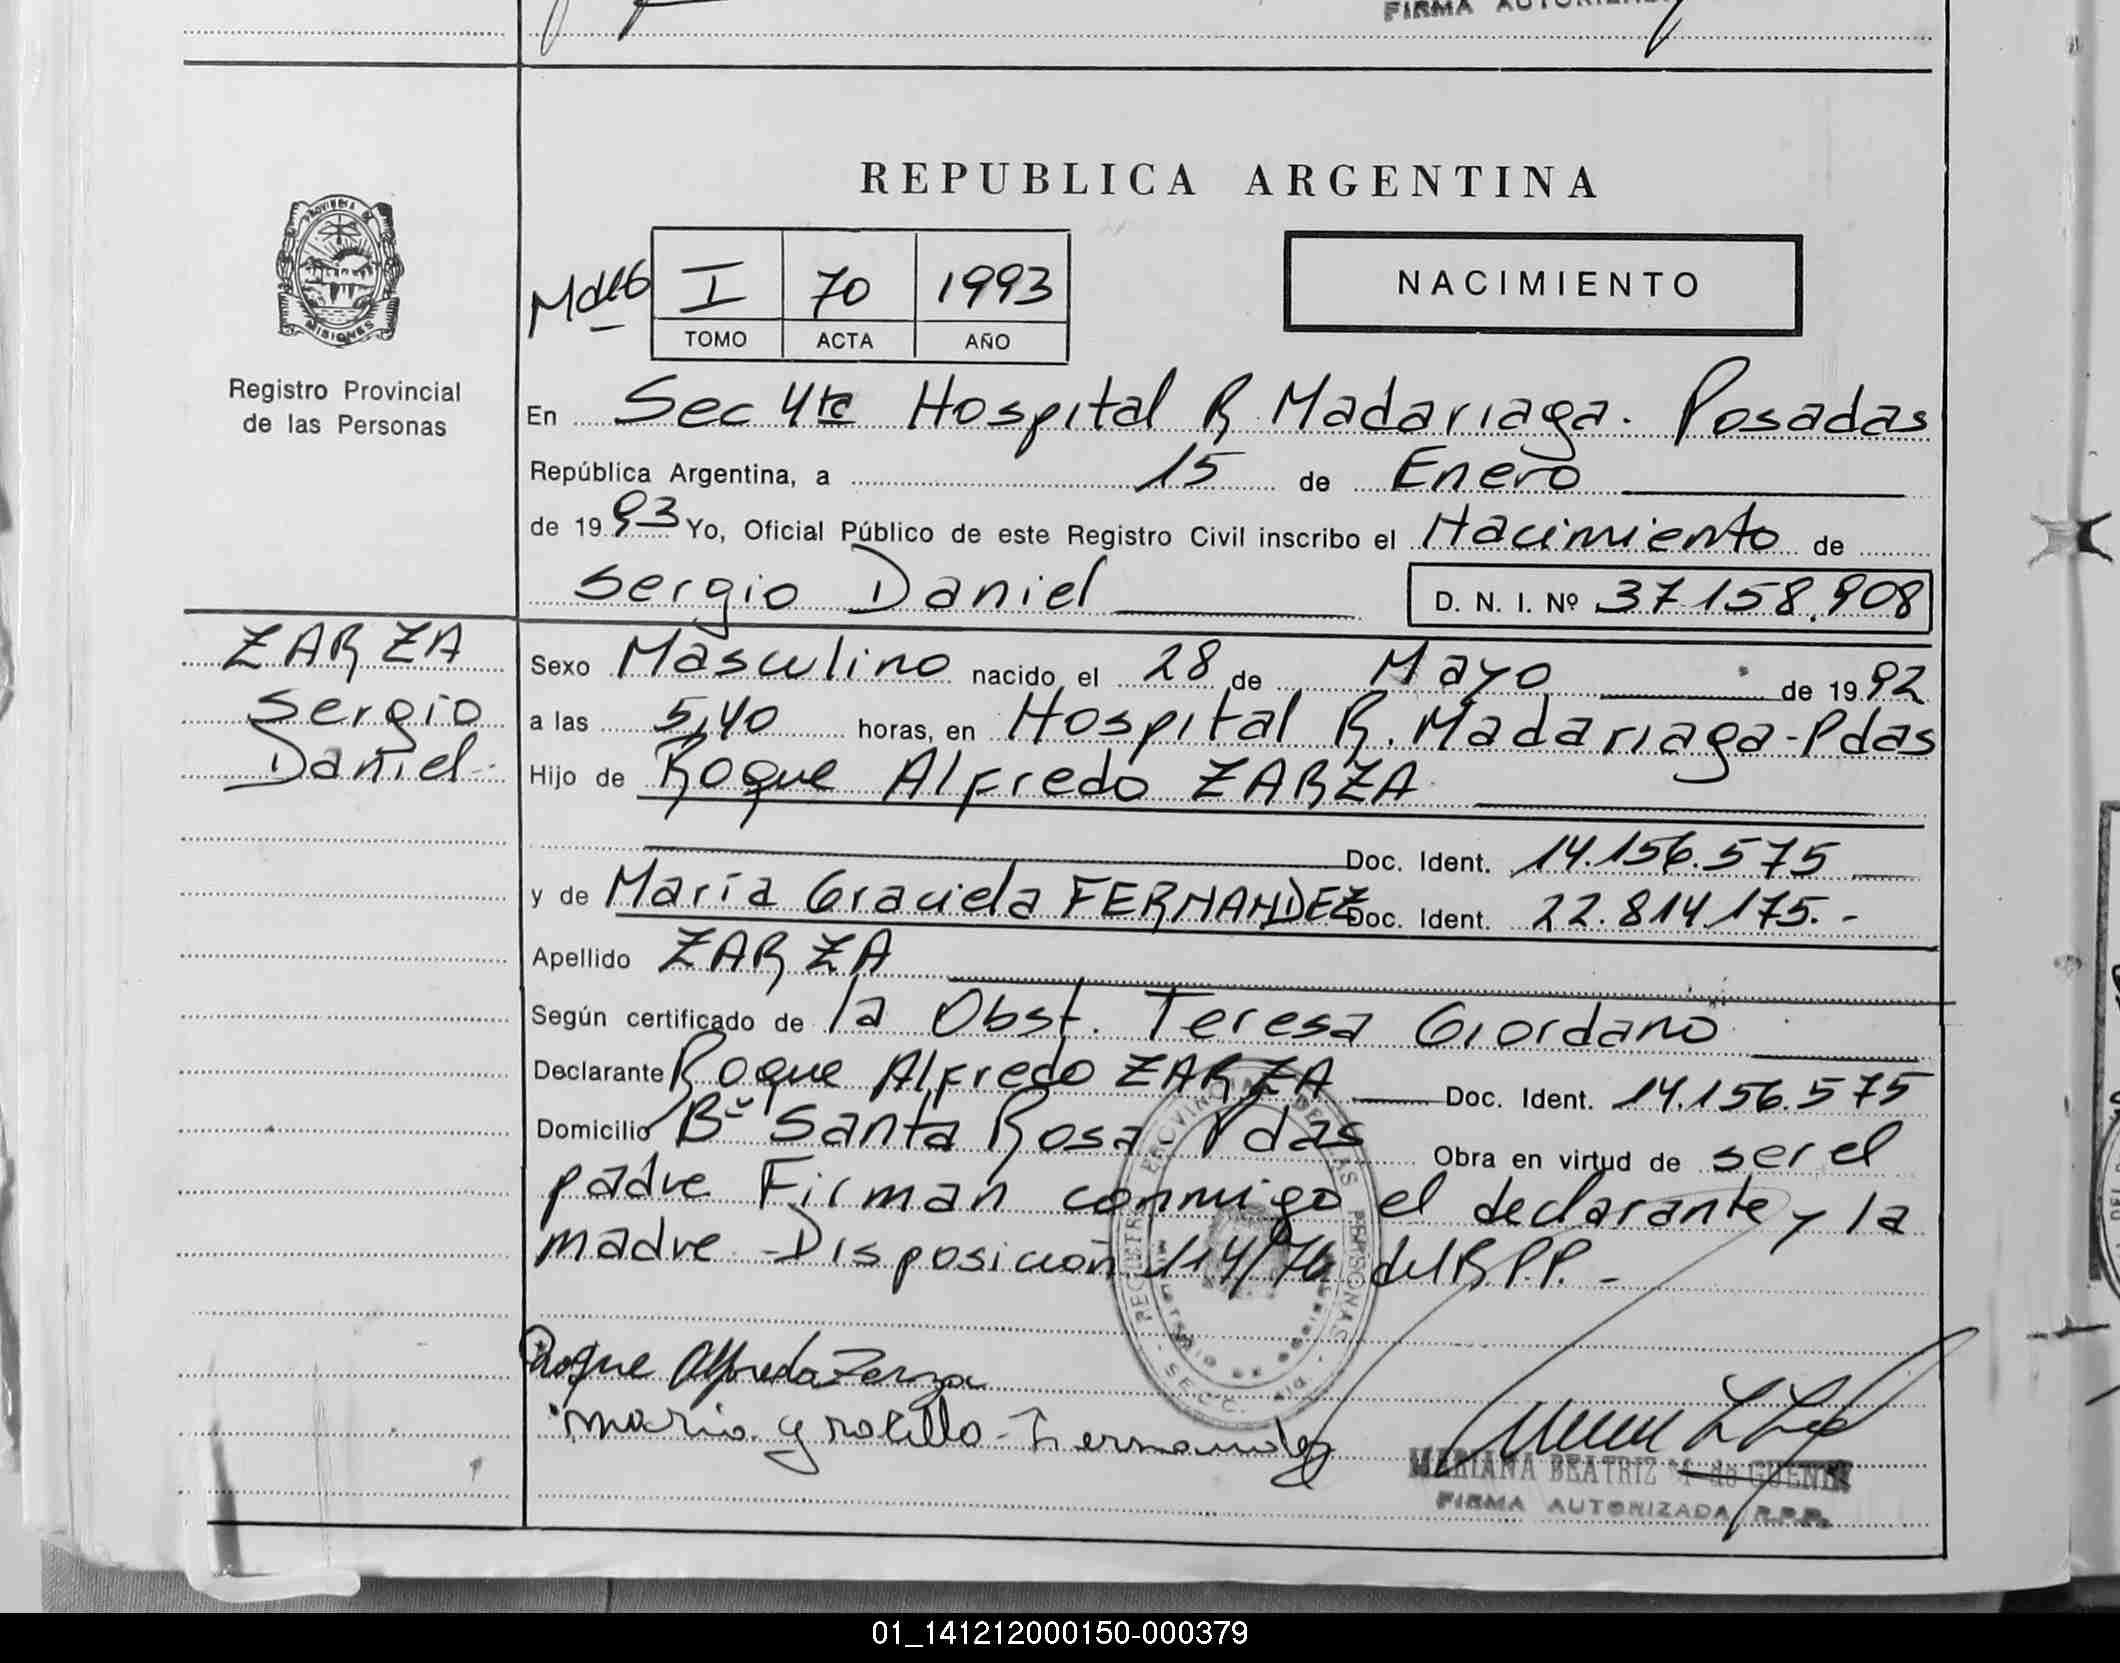 FIRMA AUTORIZADA
REPUBLICA ARGENTINA
PROVINCIA DE
MISIONES
Registro Provincial
de las Personas
I 70 1993
TOMO ACTA AÑO
NACIMIENTO
En Sec 4ta Hospital R Madariaga. Posadas
República Argentina, a 15 de Enero
de 1993 Yo, Oficial Público de este Registro Civil inscribo el Nacimiento de
Sergio Daniel D. N. I. Nº 37.158.908
ZARZA
Sergio
Daniel
Sexo Masculino nacido el 28 de Mayo de 1992
a las 5,40 horas, en Hospital R. Madariaga-Pdas
Hijo de Roque Alfredo ZARZA
Doc. Ident. 14.156.575
y de María Graciela FERNANDEZ Doc. Ident. 22.814.175.-
Apellido ZARZA
Según certificado de la Obst. Teresa Giordano
Declarante Roque Alfredo ZARZA Doc. Ident. 14.156.575
Domicilio Bº Santa Rosa Pdas Obra en virtud de ser el
padre Firman conmigo el declarante y la
madre - Disposición 114/76 del R.P.P. -
Roque Alfredo Zarza
Fernandez
MARIANA BEATRIZ M. de
FIRMA AUTORIZADA R.P.P.
01_141212000150-000379